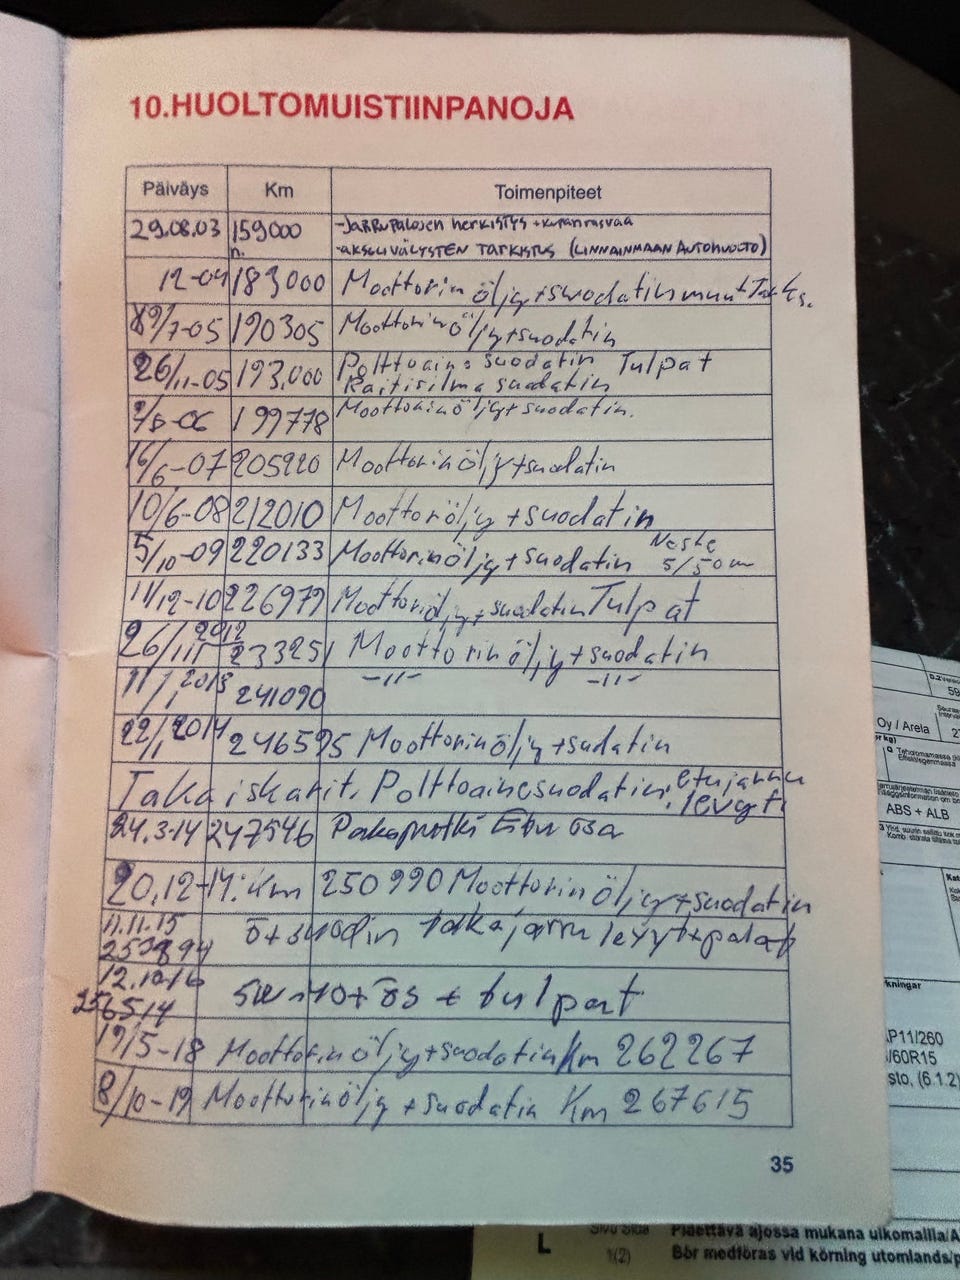 10.HUOLTOMUISTIINPANOJA
Päiväys Km Toimenpiteet
29.08.03 159000 -JARRUPALOJEN HERKISTYS + KUPARIRASVAA
n. -AKSELIVÄLYSTEN TARKISTUS (LINNAINMAAN AUTOHUOLTO)
12-04 183000 Moottorin öljy+suodatin muut
/7-05 190305 Moottorinöljy+suodatin
26/11-05 193.000 Polttoaine suodatin Tulpat
Raitisilma suodatin
-06 199778 Moottorinöljy+suodatin.
16/6-07 205920 Moottorinöljy+suodatin
10/6-08 212010 Moottoriöljy +suodatin
5/10-09 220133 Moottorinöljy+suodatin Neste
5/50
11/12-10 226979 Moottoriöljy+suodatin Tulpat
26/1 2012 233251 Moottorinöljy+suodatin
11/1 2013 241090 -11- -11-
22/1 2014 246595 Moottorinöljy+sudatin
Taka iskarit. Polttoainesuodatin. etujarru
levyt
24.3-14 247546 Pakoputki Etu osa
20.12-14. Km 250990 Moottorinöljy+suodatin
11.11.15 ö+suodin takajarru levyt+palat
12.10.16
256514 5w-40+ös + tulpat
19/5-18 Moottorinöljy+suodatin Km 262267
8/10-19 Moottorinöljy +suodatin Km 267615
35
Oy / Arela
ABS + ALB
kningar
P11/260
/60R15
sto, (6.1.2)
L
Sivu Sida
1(2)
Pidettävä ajossa mukana ulkomailla/Å
Bör medföras vid körning utomlands/p